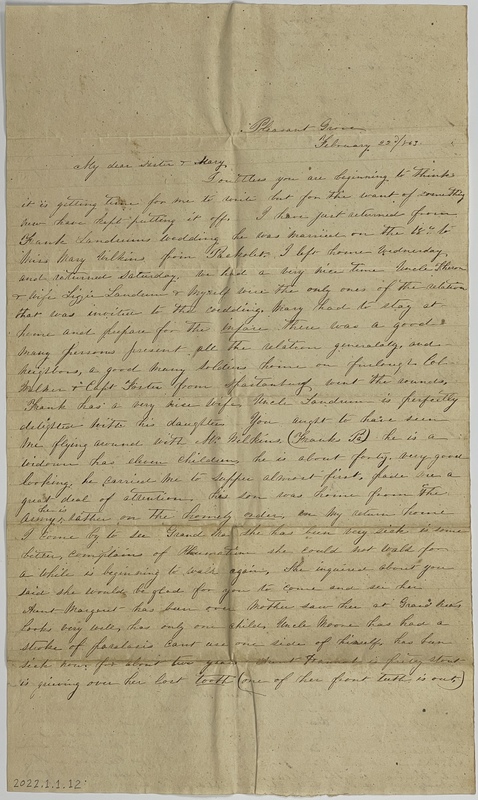 Pleasant Grove
February 23d/63
My dear Sister & Mary
Doubtless you are beginning to think
it is getting time for me to write but for the want of something
new have kept putting it off. I have just returned from
Frank Landrums wedding he was married on the 18th to
Miss Mary Wilkins from Packolet I left home Wednesday
and returned Saturday. We had a very nice time Uncle
& wife Lizie Landrum & Myself were the only ones of the relation
that was invited to the wedding. Mary had to stay at
home and prepare for the infare there was a good
many persons present, all the relation generally, and
neighbors, a good many soldiers home on furlough Col
Walker & Capt Foster from Spartanburg went the rounds,
Frank has a very nice wife Uncle Landrum is perfectly
delighted with his daughter You aught to have seen
me flying around with Mr Wilkins (Franks Pa) he is a
widower has eleven children he is about forty, very good
looking, he carried me to supper almost first, paid me a
great deal of attention his son was home from the
army, he is rather on the homely order, on my return home
I come by to see Grand Ma she has been very sick is some
better, complains of Rheumatism she could not walk for
a while is beginning to walk again. She inquired about you
said she would be glad for you to come and see her
Aunt Margaret has been over Mother saw her at Grand Mas
looks very well, has only one child, Uncle Moore has had a
stroke of paralasis cant use one side of himself, has been
sick now for about two years Aunt is pretty stout
is grieving over her lost tooth (one of her front teeth is out)
2022.1.1.12